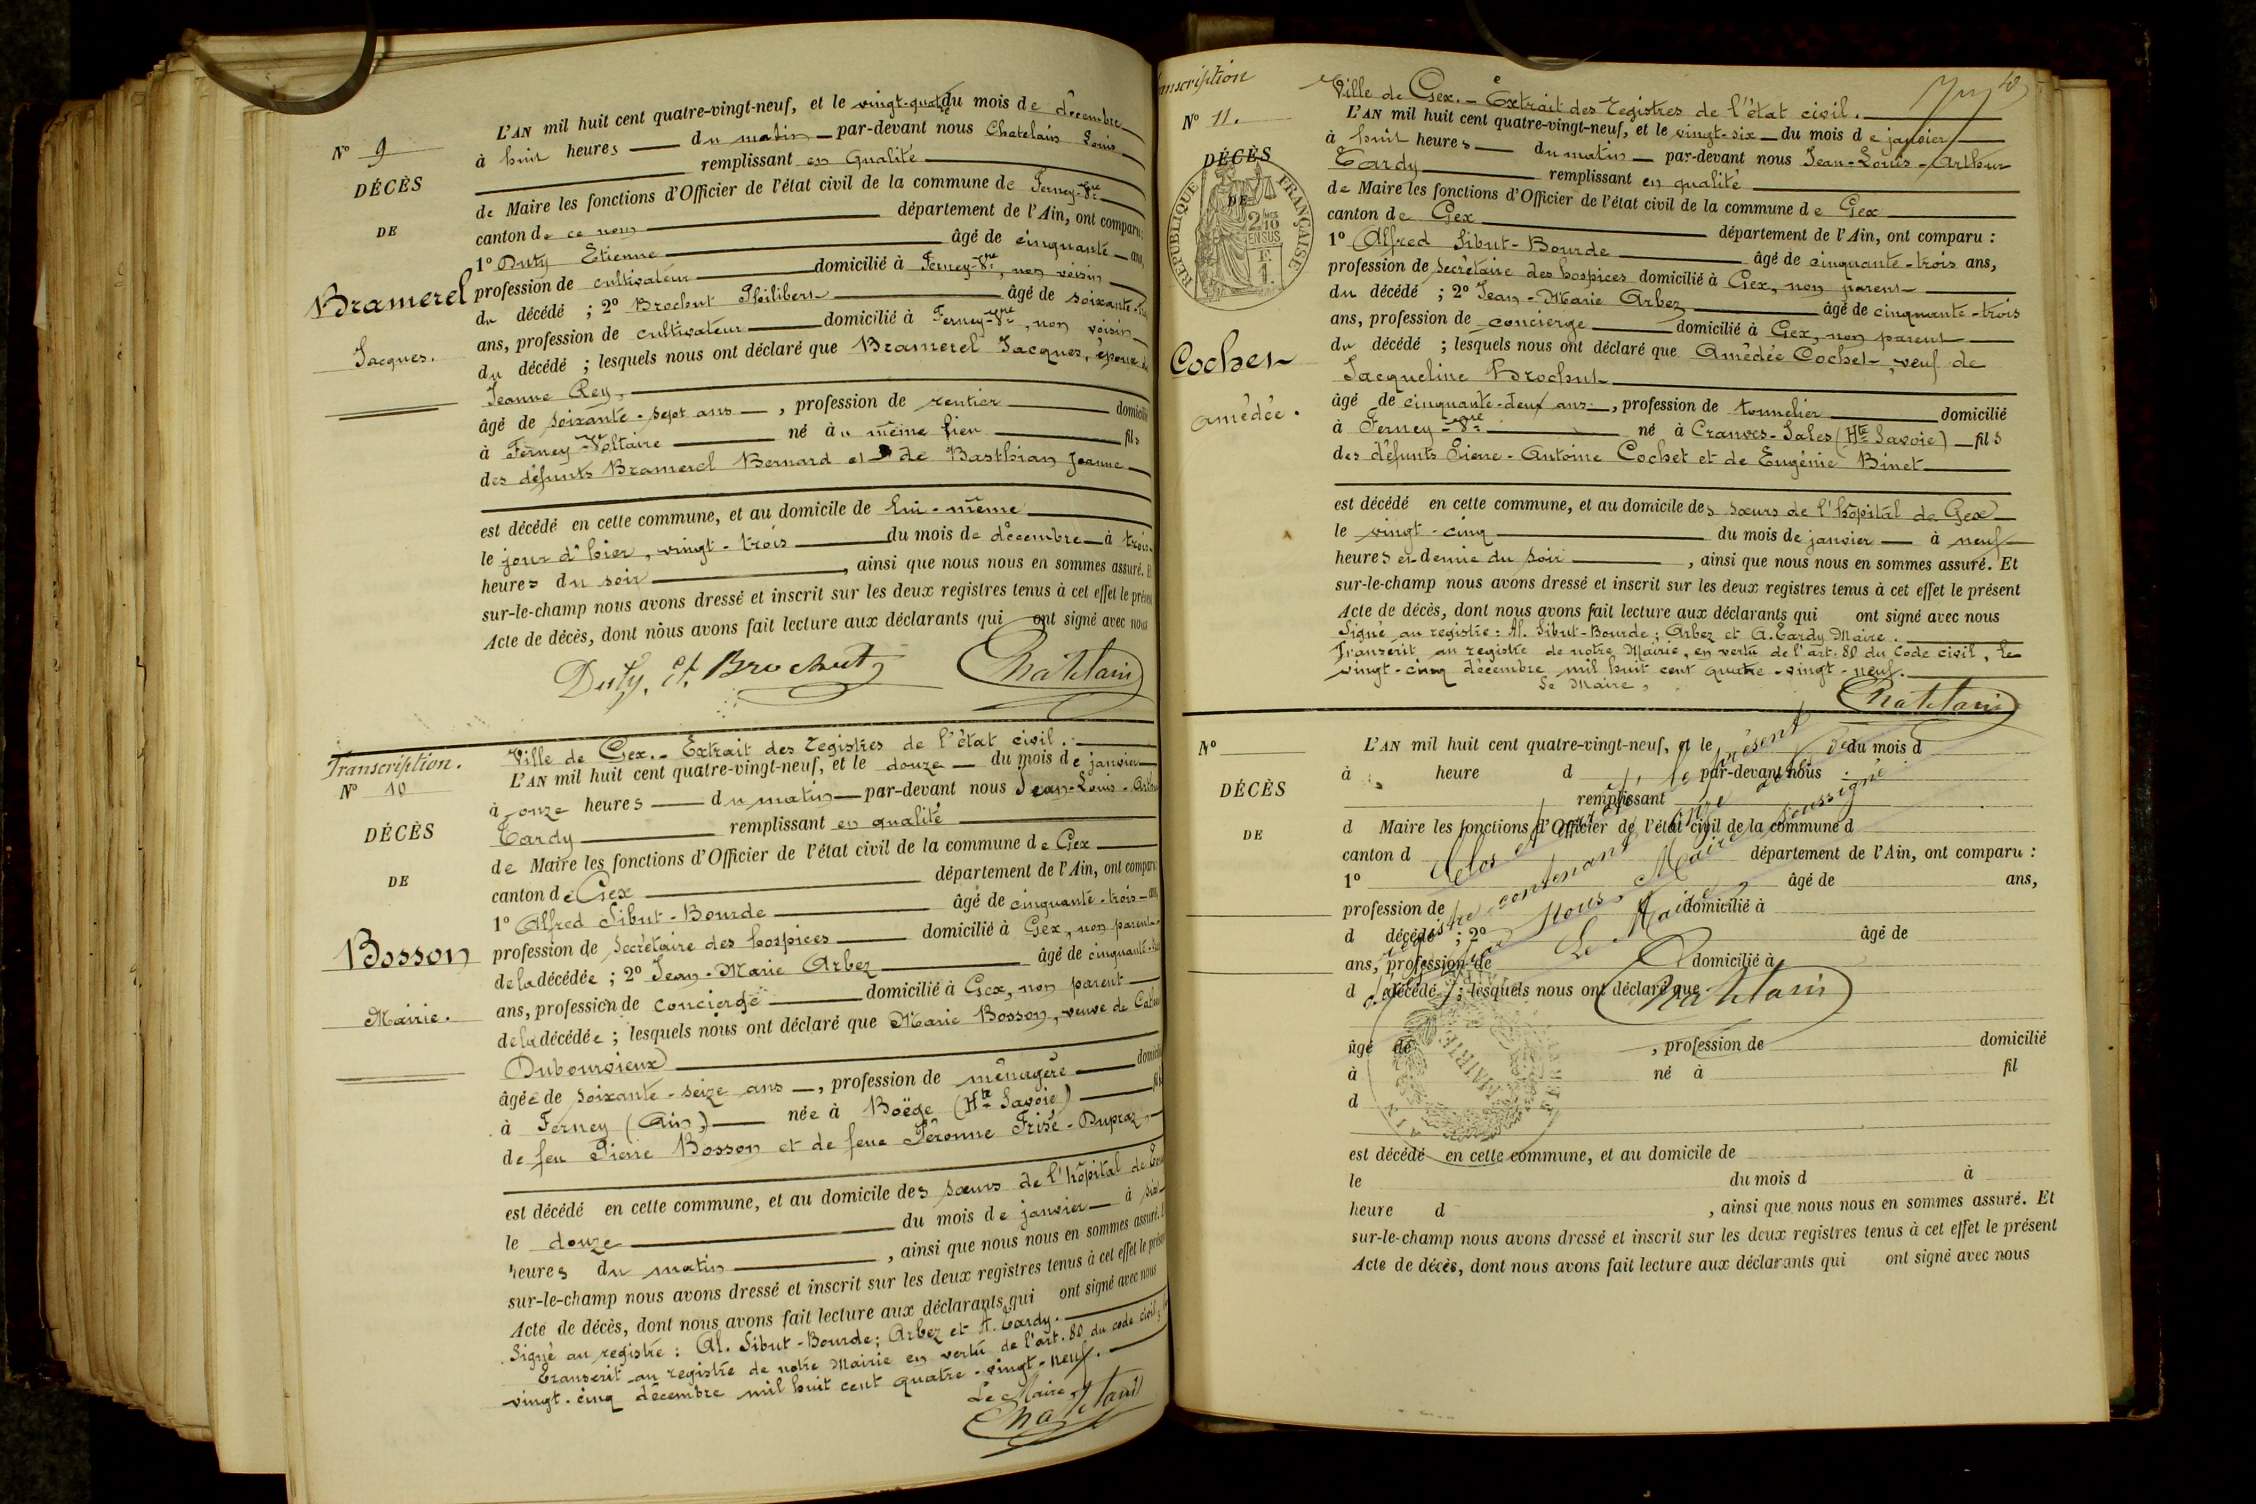 L'AN mil huit cent quatre-vingt-neuf, et le vingt-quatre du mois de décembre
Nº 9
à huit heures du matin par-devant nous Chatelain Louis
remplissant en qualité
DÉCÈS
de Maire les fonctions d'Officier de l'état civil de la commune de Ferney-Vre
DE
canton de ce nom département de l'Ain, ont comparu :
1º Duty Etienne âgé de cinquante ans,
Bramerel
profession de cultivateur domicilié à Ferney-Vre, non voisin
du décédé ; 2º Brochut Philibert âgé de soixante-
ans, profession de cultivateur domicilié à Ferney-Vre, non voisin
Jacques.
du décédé ; lesquels nous ont déclaré que Bramerel Jacques, époux de
Jeanne Rey,
âgé de soixante-sept ans, profession de rentier domicilié
à Ferney-Voltaire né au même lieu fils
des défunts Bramerel Bernard et de Basthian Jeanne
est décédé en cette commune, et au domicile de lui-même
le jour d'hier, vingt-trois du mois de décembre à trois
heures du soir, ainsi que nous nous en sommes assuré. Et
sur-le-champ nous avons dressé et inscrit sur les deux registres tenus à cet effet le présent
Acte de décès, dont nous avons fait lecture aux déclarants qui ont signé avec nous
Duty. et. Brochut Chatelain
Transcription.
Ville de Gex. - Extrait des registres de l'état civil.
Nº 10
L'AN mil huit cent quatre-vingt-neuf, et le douze du mois de janvier
à onze heures du matin par-devant nous Jean-Louis-Arthur
DÉCÈS
Tardy remplissant en qualité
de Maire les fonctions d'Officier de l'état civil de la commune de Gex
DE
canton de Gex département de l'Ain, ont comparu
1º Alfred Sibut-Bourde âgé de cinquante-trois ans,
Bosson
profession de secrétaire des hospices domicilié à Gex, non parent
de la décédée ; 2º Jean-Marie Arbez âgé de cinquante-trois
ans, profession de concierge domicilié à Gex, non parent
Mairie.
de la décédée ; lesquels nous ont déclaré que Marie Bosson, veuve de
Dubourvieux
âgée de soixante-seize ans, profession de ménagère domiciliée
à Ferney (Ain) née à Boëge (Hte Savoie) fille
de feu Pierre Bosson et de feue Péronne Frisé-Dupraz
est décédé en cette commune, et au domicile des sœurs de l'hôpital de Gex
le douze du mois de janvier à six
heures du matin, ainsi que nous nous en sommes assuré. Et
sur-le-champ nous avons dressé et inscrit sur les deux registres tenus à cet effet le présent
Acte de décès, dont nous avons fait lecture aux déclarants qui ont signé avec nous
Signé au registre : Al. Sibut-Bourde ; Arbez et A. Tardy.
Transcrit au registre de notre Mairie en vertu de l'art. 80 du code civil, le
vingt-cinq décembre mil huit cent quatre-vingt-neuf.
Le Maire,
Chatelain
Transcription
Ville de Gex. - Extrait des registres de l'état civil.
Nº 11.
L'AN mil huit cent quatre-vingt-neuf, et le vingt-six du mois de janvier
à huit heures du matin par-devant nous Jean-Louis-Arthur
DÉCÈS
Tardy remplissant en qualité
DE
RÉPUBLIQUE FRANÇAISE
2/10 EN SUS
1 F.
de Maire les fonctions d'Officier de l'état civil de la commune de Gex
canton de Gex département de l'Ain, ont comparu :
1º Alfred Sibut-Bourde âgé de cinquante-trois ans,
profession de secrétaire des hospices domicilié à Gex, non parent
du décédé ; 2º Jean-Marie Arbez âgé de cinquante-trois
ans, profession de concierge domicilié à Gex, non parent
Cochet
du décédé ; lesquels nous ont déclaré que Amédée Cochet, veuf de
Jacqueline Brochut
amédée.
âgé de cinquante-deux ans, profession de tonnelier domicilié
à Ferney-Vre né à Cranves-Sales (Hte Savoie) fils
des défunts Pierre-Antoine Cochet et de Eugénie Binet
est décédé en cette commune, et au domicile des sœurs de l'hôpital de Gex
le vingt-cinq du mois de janvier à neuf
heures et demie du soir, ainsi que nous nous en sommes assuré. Et
sur-le-champ nous avons dressé et inscrit sur les deux registres tenus à cet effet le présent
Acte de décès, dont nous avons fait lecture aux déclarants qui ont signé avec nous
Signé au registre : Al. Sibut-Bourde ; Arbez et A. Tardy Maire.
Transcrit au registre de notre Mairie, en vertu de l'art. 80 du Code civil, le
vingt-cinq décembre mil huit cent quatre-vingt-neuf.
Le Maire,
Chatelain
Nº
L'AN mil huit cent quatre-vingt-neuf, et le du mois d
à heure d par-devant nous
DÉCÈS
remplissant
DE
d Maire les fonctions d'Officier de l'état civil de la commune d
canton d département de l'Ain, ont comparu :
1º âgé de ans,
profession de domicilié à
d décédé ; 2º âgé de
ans, profession de domicilié à
d décédé ; lesquels nous ont déclaré que
âgé de , profession de domicilié
à né à fil
d
est décédé en cette commune, et au domicile de
le du mois d à
heure d , ainsi que nous nous en sommes assuré. Et
sur-le-champ nous avons dressé et inscrit sur les deux registres tenus à cet effet le présent
Acte de décès, dont nous avons fait lecture aux déclarants qui ont signé avec nous
Clos et arrêté le présent
registre contenant onze actes
par nous Maire soussigné
Le Maire
Chatelain
MAIRIE
AIN